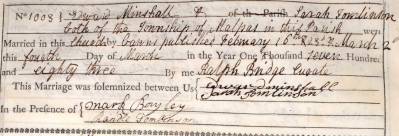 No 1008 } Edward Minshall & of the Parish Sarah Tomlinson
both of the Township of Malpas in this Parish were
Married in this Church by Banns published February 16th 23d & March 2d
this fourth Day of March in the Year One Thousand Seven Hundred
and eighty three By me Ralph Bridge Curate
This Marriage was solemnized between Us Edward Minshall
Sarah Tomlinson
In the Presence of { Mark Bayley
Randle Tomlinson